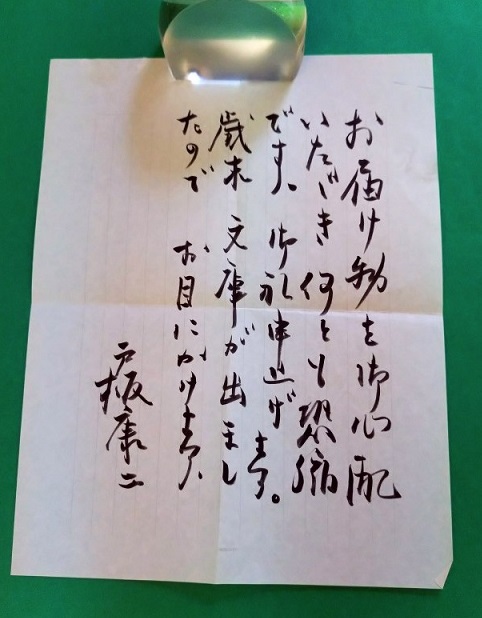 お届け物を御心配
いただき 何とも恐縮
です、御礼申上げます。
歳末 文庫が出まし
たので お目にかけます、
戸板康二